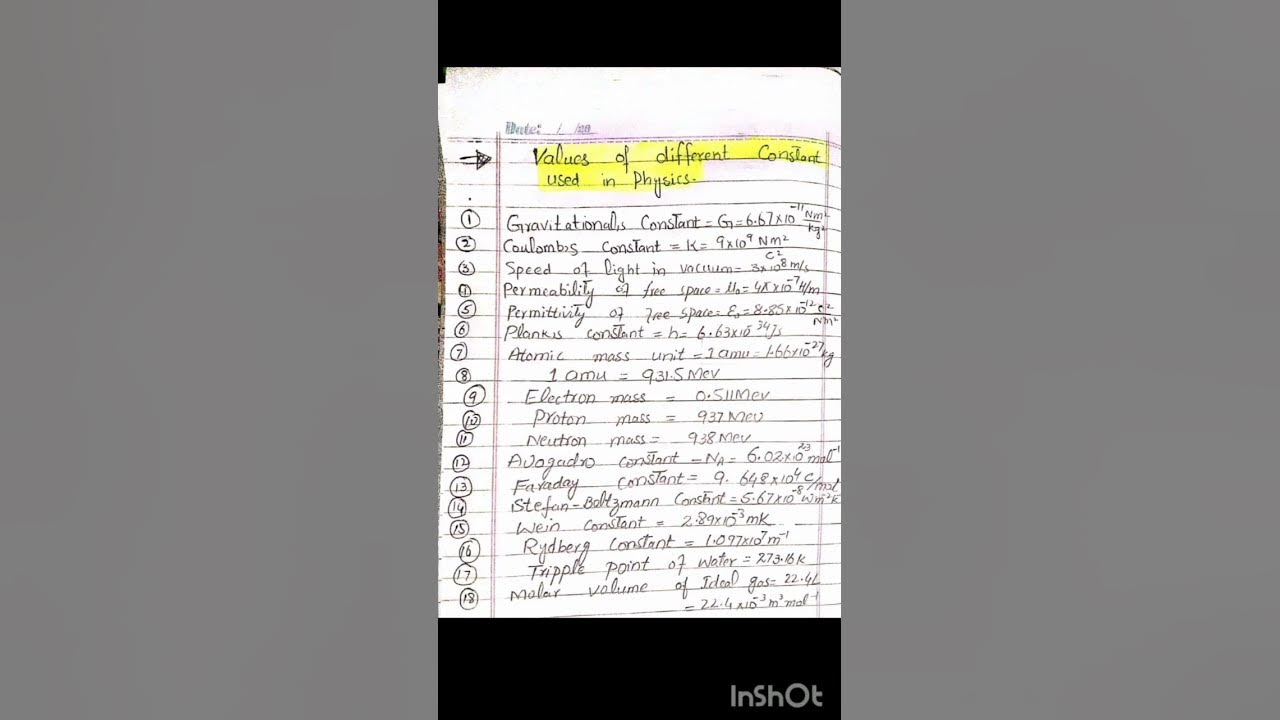 Date: / /20
Values of different Constant
used in Physics.
① Gravitational,s Constant = G = 6.67×10⁻¹¹ Nm²/kg²
② Coulomb,s constant = K = 9×10⁹ Nm²/C²
③ Speed of light in vacuum = 3×10⁸ m/s
④ Permeability of free space = μ₀ = 4π×10⁻⁷ H/m
⑤ Permittivity of free space = ε₀ = 8.85×10⁻¹² C²/Nm²
⑥ Plank,s constant = h = 6.63×10⁻³⁴ Js
⑦ Atomic mass unit = 1 amu = 1.66×10⁻²⁷ kg
⑧ 1 amu = 931.5 Mev
⑨ Electron mass = 0.511 Mev
⑩ Proton mass = 937 Mev
⑪ Neutron mass = 938 Mev
⑫ Avogadro constant – N_A = 6.02×10²³ mol⁻¹
⑬ Faraday constant = 9.648×10⁴ C/mol
⑭ Stefan-Boltzmann Constnt = 5.67×10⁻⁸ Wm⁻²K
⑮ Wein constant = 2.89×10⁻³ mK
⑯ Rydberg constant = 1.097×10⁷ m⁻¹
⑰ Tripple point of water = 273.16 K
⑱ Molar volume of Ideal gas = 22.4L
= 22.4×10⁻³ m³ mol⁻¹
InShOt